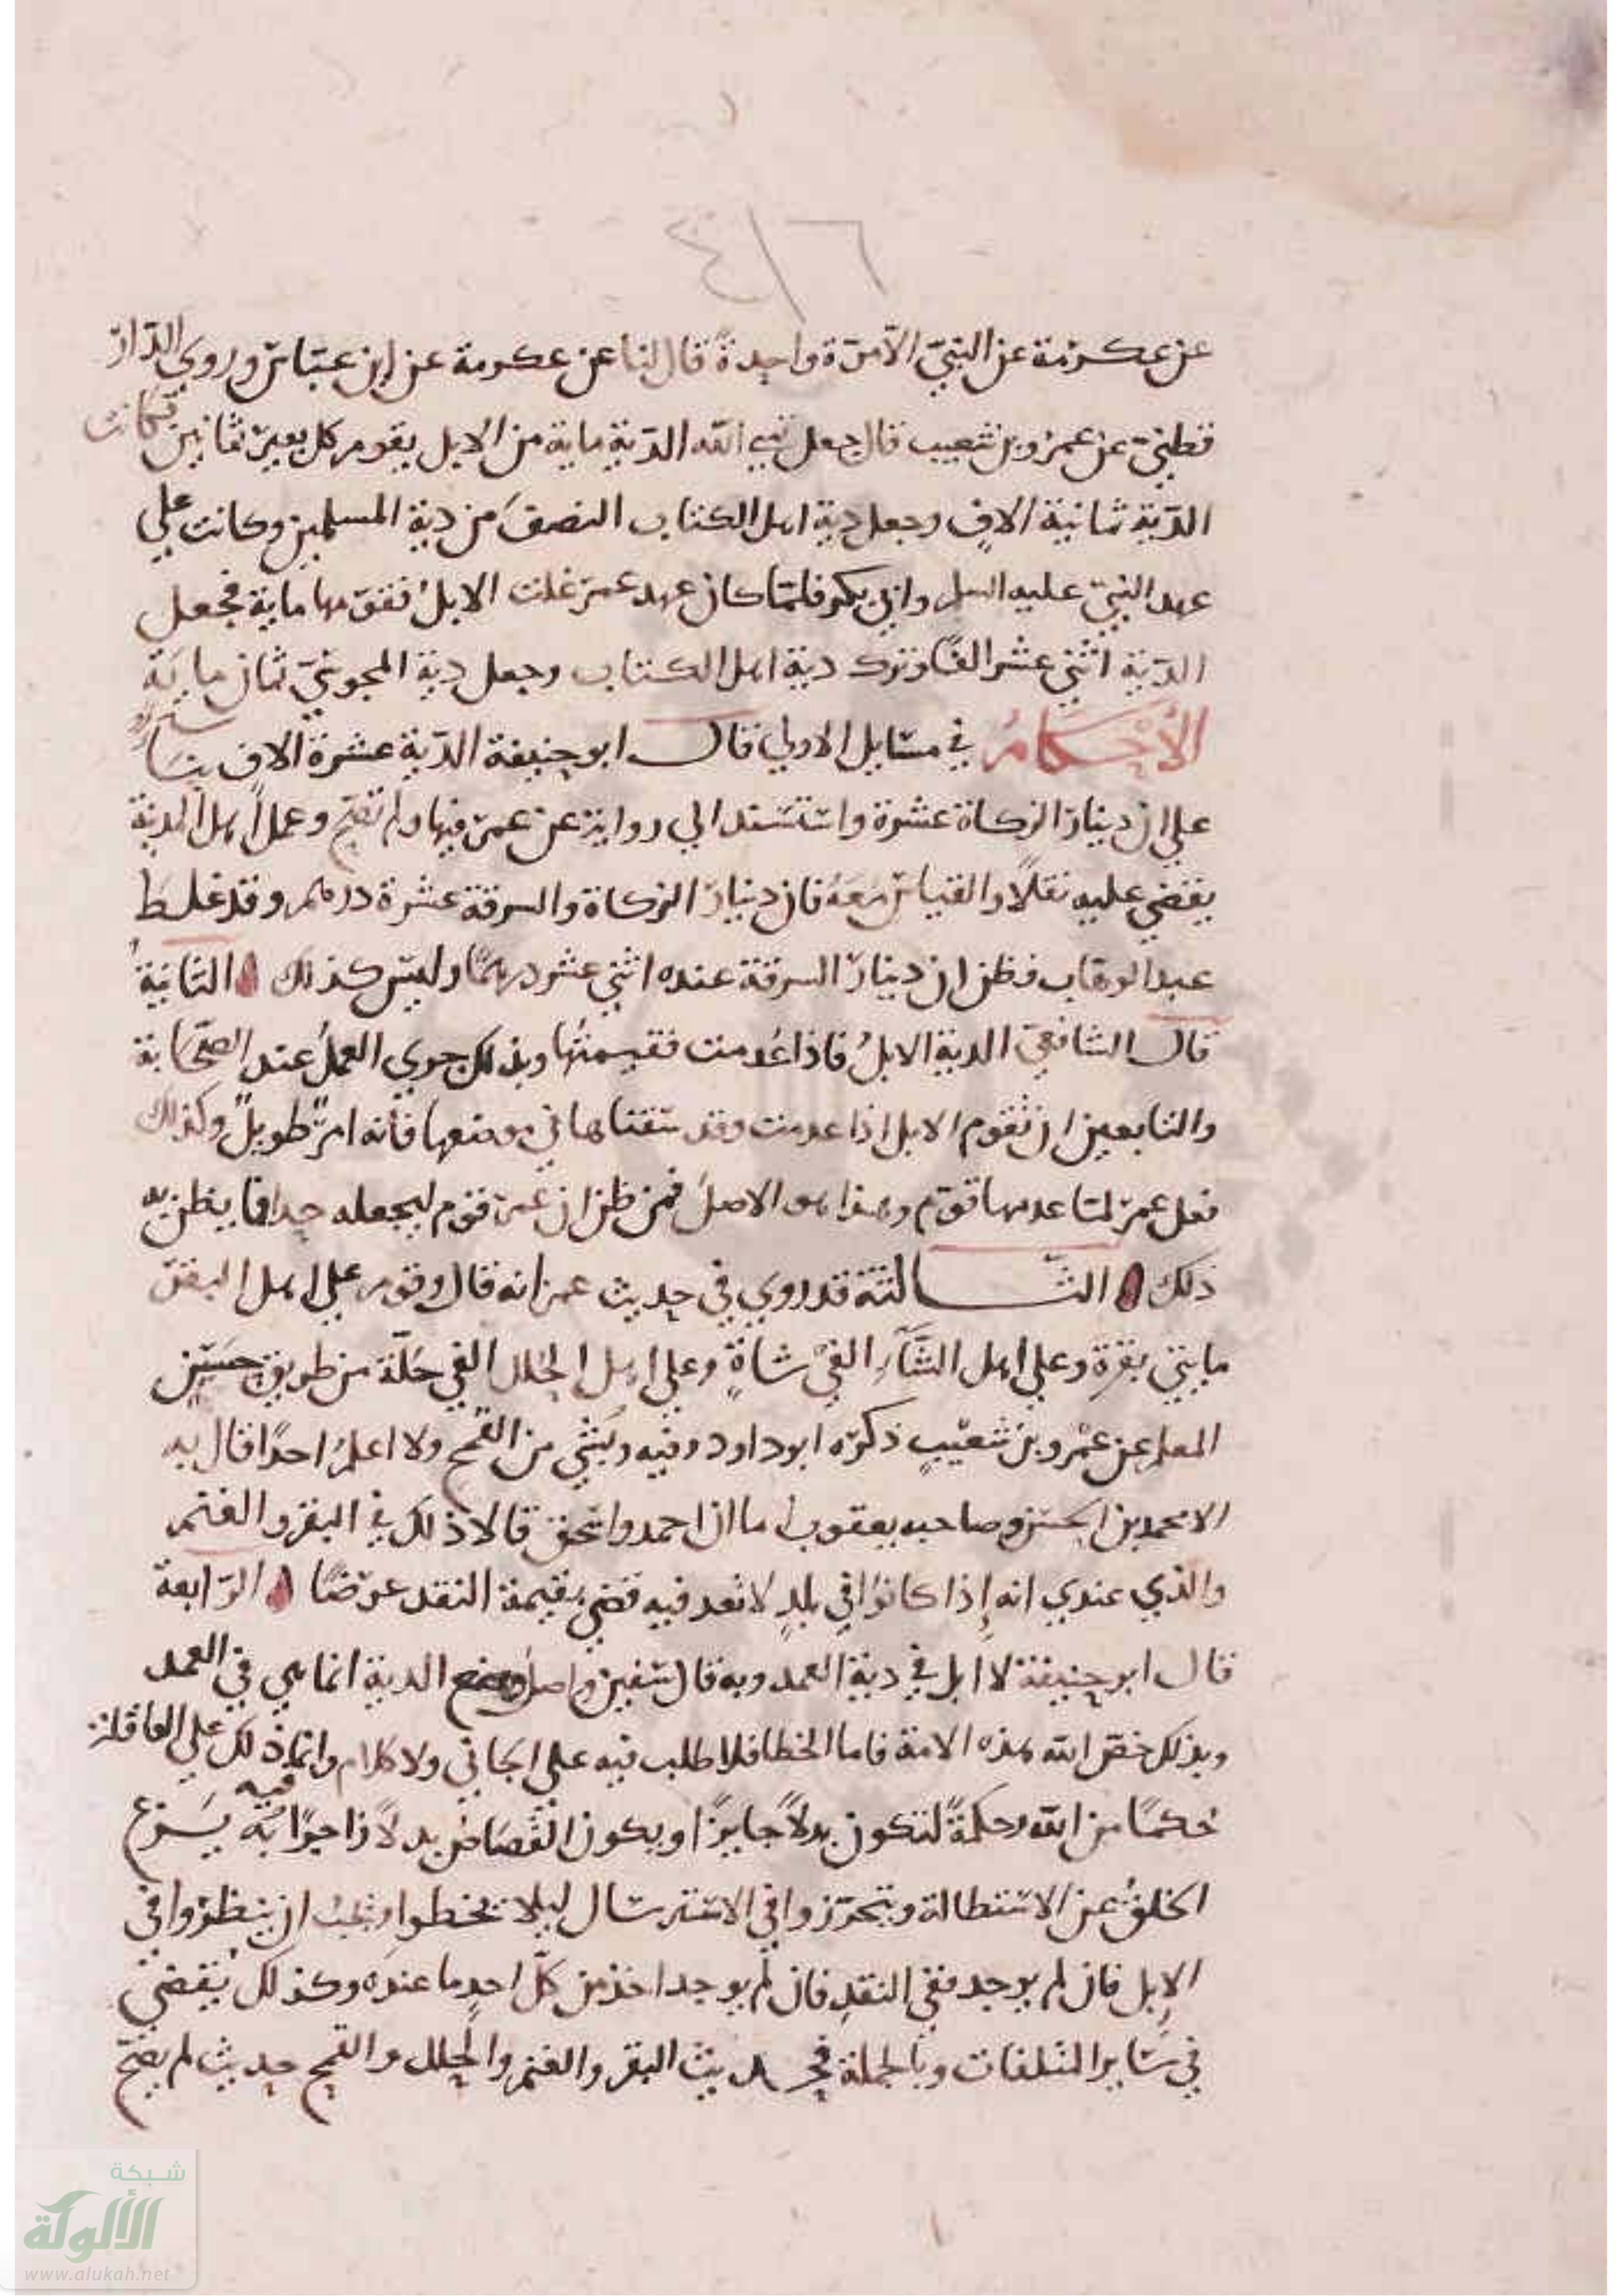 ٤١٦
عن عكرمة عن النبي الا مرة واحدة قال لنا عن عكرمة عن ابن عباس وروى الدار
قطني عن عمرو بن شعيب قال جعل نبي الله الدية ماية من الابل يقوم كل بعير ثمانين فكانت
الدية ثمانية الاف وجعل دية اهل الكتاب النصف من دية المسلمين وكانت على
عهد النبي عليه السلم وابي بكر فلما كان عهد عمر غلت الابل فقومها ماية فجعل
الدية اثني عشر الفا وترك دية اهل الكتاب وجعل دية المجوسي ثمان ماية
الأحكام في مسايل الاولى قال ابو حنيفة الدية عشرة الاف بناء
على ان دينار الزكاة عشرة واستند الى رواية عن عمر فيها ولم تصح وعمل اهل المدينة
يقضي عليه نقلا والقياس معه فان دينار الزكاة والسرقة عشرة درهم وقد غلط
عبد الوهاب فظن ان دينار السرقة عنده اثني عشر درهما وليس كذلك الثانية
قال الشافعي الدية الابل فاذا عدمت فقيمتها وبذلك جرى العمل عند الصحابة
والتابعين ان تقوم الابل اذا عدمت وقد سقناها في موضعها فانه امر طويل وكذلك
فعل عمر لما عدمها قوم وهذا هو الاصل فمن ظن ان عمر قوم ليجعله حدا فما يظن به
ذلك الثالثة قد روي في حديث عمر انه قال وقوم على اهل البقر
مايتي بقرة وعلى اهل الشاء الفي شاة وعلى اهل الحلل الفي حلة من طريق حسين
المعلم عن عمرو بن شعيب ذكره ابو داود وفيه وبشي من القمح ولا اعلم احدا قال به
الا محمد بن الحسن وصاحبه يعقوب اما ان احمد واسحق قالا ذلك في البقر والغنم
والذي عندي انه إذا كانوا في بلد لا نقد فيه قضي بقيمة النقد عرضا الرابعة
قال ابو حنيفة لا ابل في دية العمد وبه قال سفين واصل وضع الدية انما هي في العمد
وبذلك خص الله هذه الامة فاما الخطا فلا طلب فيه على الجاني ولا كلام وانما ذلك على العاقلة
حكما من الله وحكمة لتكون بدلا جايزا ويكون القصاص بدلا زاجرا به فيه يسرع
الخلق عن الاستطالة ويتحرزوا في الاسترسال ليلا يخطوا ويجب ان ينظروا في
الإبل فان لم يوجد ففي النقد فان لم يوجد اخذ من كل احد ما عنده وكذلك يقضي
في ساير المتلفات وبالجملة فحديث البقر والغنم والحلل والقمح حديث لم يصح
شبكة
الألوكة
www.alukah.net